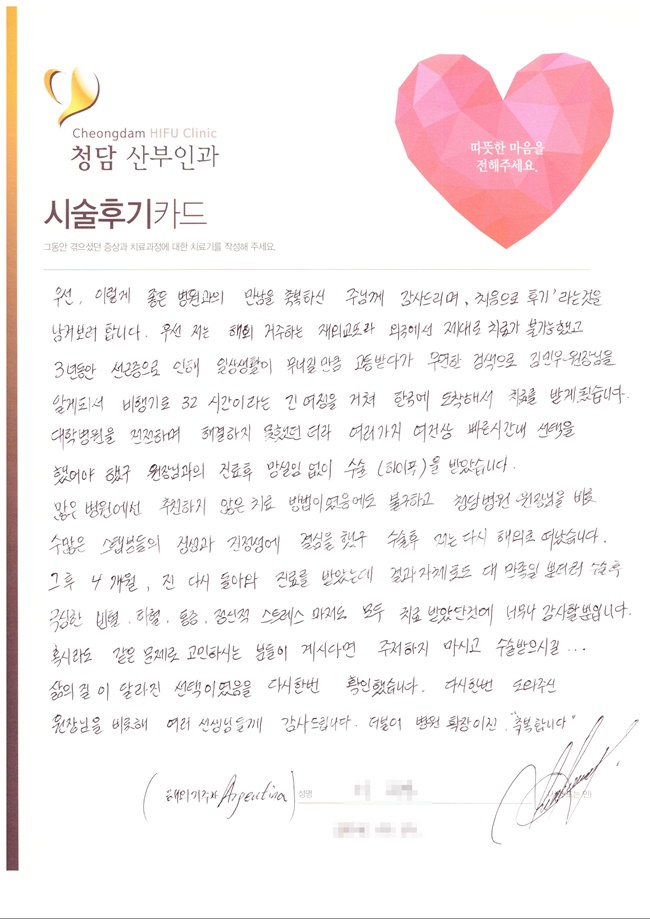 Cheongdam HIFU Clinic
청담 산부인과
따뜻한 마음을
전해주세요.
시술후기카드
그동안 겪으셨던 증상과 치료과정에 대한 치료기를 작성해 주세요.
우선, 이렇게 좋은 병원과의 만남을 축복하신 주님께 감사드리며, '처음으로 후기' 라는것을
남겨보려 합니다. 우선 저는 해외 거주하는 재외교포라 외국에서 제대로 치료가 불가능했고
3년동안 선근증으로 인해 일상생활이 무너질만큼 고통받다가 우연한 검색으로 김민우 원장님을
알게되서 비행기로 32 시간이라는 긴 여정을 거쳐 한국에 도착해서 치료를 받게됬습니다.
대학병원을 전전하며 해결하지 못했던 터라 여러가지 여건상 빠른시간내 선택을
했어야 했구 원장님과의 진료후 망설임 없이 수술 (하이푸)을 받았습니다.
많은 병원에서 추천하지 않은 치료 방법이었음에도 불구하고 청담병원 원장님을 비롯
수많은 스텝분들의 정성과 진정성에 결심을 했구 수술후 저는 다시 해외로 떠났습니다.
그후 4개월, 전 다시 돌아와 진료를 받았는데 결과자체로도 대 만족일 뿐더러 수술후
극심한 빈혈, 하혈, 통증, 정신적 스트레스 마저도 모두 치료 받았단것에 너무나 감사할뿐입니다.
혹시라도 같은 문제로 고민하시는 분들이 계시다면 주저하지 마시고 수술받으시길...
삶의 질이 달라진 선택이었음을 다시한번 확인했습니다. 다시한번 도와주신
원장님을 비롯해 여러 선생님들께 감사드립니다. 더불어 병원 확장이전 "축복합니다"
(해외거주자 Argentina) 성명